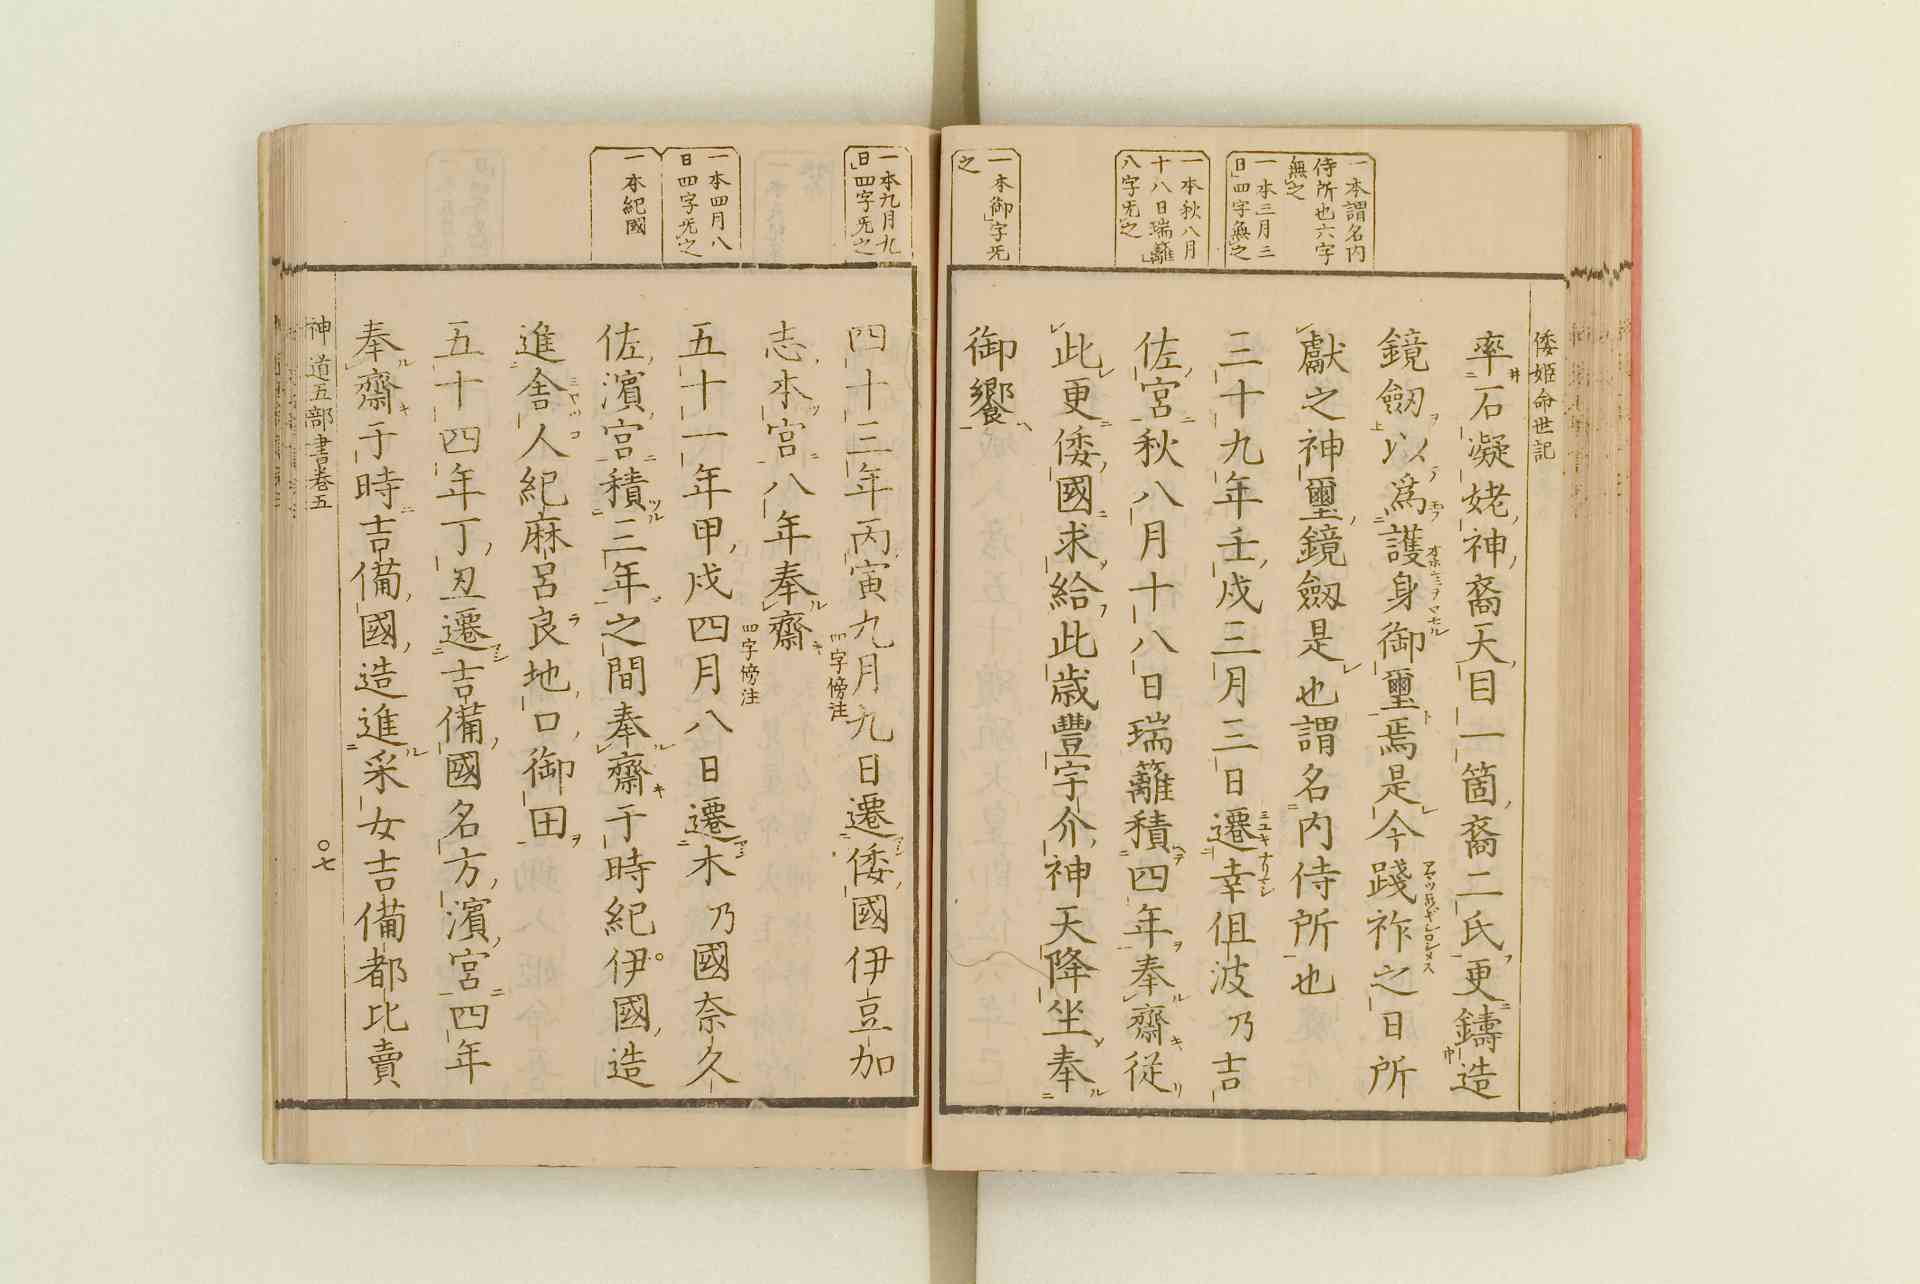 倭姫命世記
一本謂名内
侍所也六字
無之
一本三月三
日四字無之
一本秋八月
十八日瑞籬
八字旡之
一本御字旡
之
率石凝姥神裔天目一箇裔二氏更鑄造
鏡劔以爲護身御璽焉是今踐祚之日所
獻之神璽鏡劔是也謂名内侍所也
三十九年壬戍三月三日遷幸伹波乃吉
佐宮秋八月十八日瑞籬積四年奉齋從
此更倭國求給此歳豐宇介神天降坐奉
御饗
一本九月九
日四字旡之
一本四月八
日四字旡之
一本紀國
四十三年丙寅九月九日遷倭國伊豆加
四字傍注
志本宮八年奉齋
四字傍注
五十一年甲戍四月八日遷木乃國奈久
佐濱宮積三年之間奉齋于時紀伊國造
進舎人紀麻呂良地口御田
五十四年丁丑遷吉備國名方濱宮四年
奉齋于時吉備國造進采女吉備都比賣
神道五部書卷五
〇七